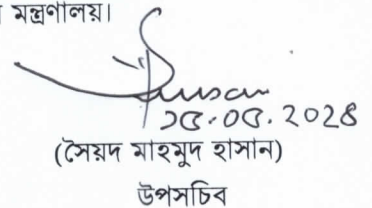 মন্ত্রণালয়।
১৫.০৫.২০২৪
(সৈয়দ মাহমুদ হাসান)
উপসচিব